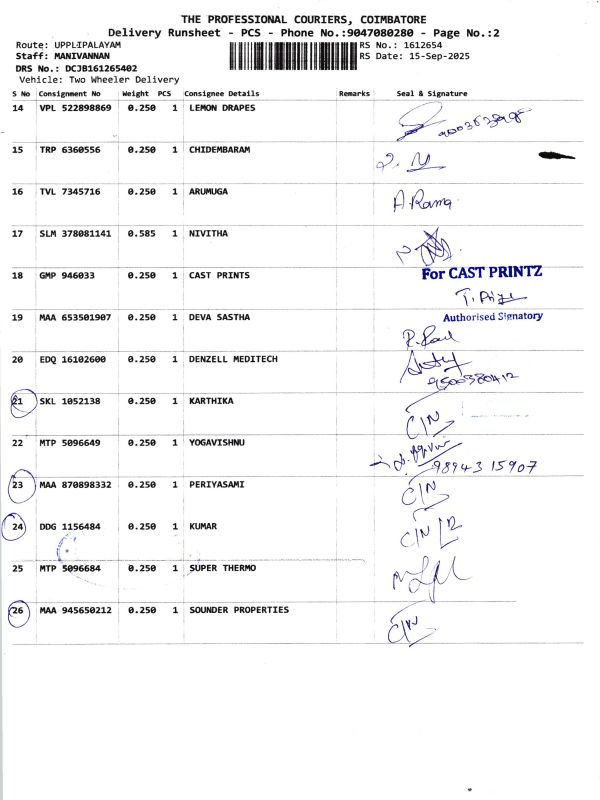 THE PROFESSIONAL COURIERS, COIMBATORE
Delivery Runsheet - PCS - Phone No.:9047080280 - Page No.:2
Route: UPPLIPALAYAM
RS No.: 1612654
Staff: MANIVANNAN
RS Date: 15-Sep-2025
DRS No.: DCJB161265402
Vehicle: Two Wheeler Delivery
S No Consignment No Weight PCS Consignee Details Remarks Seal & Signature
14 VPL 522898869 0.250 1 LEMON DRAPES
15 TRP 6360556 0.250 1 CHIDEMBARAM
16 TVL 7345716 0.250 1 ARUMUGA
A. Rama
17 SLM 378081141 0.585 1 NIVITHA
18 GMP 946033 0.250 1 CAST PRINTS
For CAST PRINTZ
19 MAA 653501907 0.250 1 DEVA SASTHA
Authorised Signatory
20 EDQ 16102600 0.250 1 DENZELL MEDITECH
9500380412
21 SKL 1052138 0.250 1 KARTHIKA
C/N
22 MTP 5096649 0.250 1 YOGAVISHNU
98943 15907
23 MAA 870898332 0.250 1 PERIYASAMI
C/N
24 DDG 1156484 0.250 1 KUMAR
C/N
25 MTP 5096684 0.250 1 SUPER THERMO
26 MAA 945650212 0.250 1 SOUNDER PROPERTIES
C/N